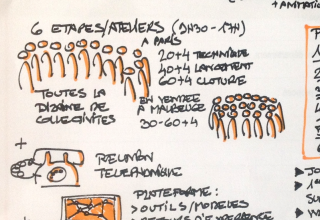 + ANIMATION
6 ETAPES/ATELIERS (9H30 - 17H)
A PARIS
20+4 TECHNIQUE
40+4 LANCEMENT
60+4 CLOTURE
TOUTES LA
DIZAINE DE
COLLECTIVITES
EN VENDEE
A MAUBEUGE
30-60+4
+
REUNION
TELEPHONIQUE
+
PLATEFORME :
> OUTILS/MODELES
D'EXPERIENCE